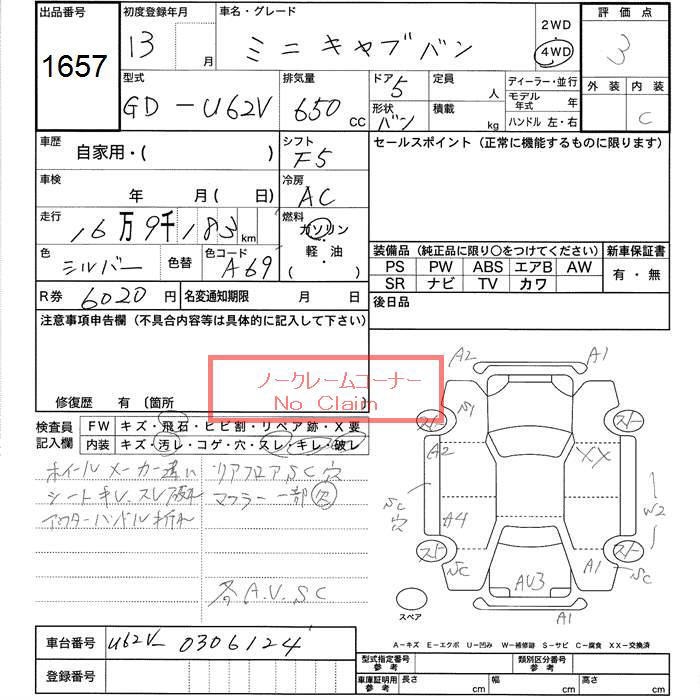 出品番号
1657
初度登録年月
13 月
車名・グレード
ミニキャブバン
2WD
4WD
評価点
3
外装 内装
C
型式
GD-U62V
排気量
650 CC
ドア 5
形状 バン
定員 人
積載 kg
ディーラー・並行
モデル年式 年
ハンドル 左・右
車歴
自家用・( )
シフト
F5
セールスポイント(正常に機能するものに限ります)
車検
年 月(日)
冷房
AC
走行
16万9千183 km
燃料
ガソリン
軽・油
( )
色
シルバー
色替
色コード
A69
装備品(純正品に限り〇をつけてください)
新車保証書
PS PW ABS エアB AW
SR ナビ TV カワ
有・無
R券 6020 円
名変通知期限 月 日
後日品
注意事項申告欄(不具合内容等は具体的に記入して下さい)
ノークレームコーナー
No Claim
修復歴 有 〔箇所
検査員記入欄
FW キズ・飛石・ヒビ割・リペア跡・X要
内装 キズ・汚レ・コゲ・穴・スレ・キレ・破レ
ホイールメーカー違い
リアフロアSC穴
シートキレ、スレ破れ
マフラー一部穴
アウターハンドル折れ
各A.U.SC
A2 A1
スト スト
A2 XX
SC穴
A4
W2
スト スト
SC AU3 A1 SC
A1
スペア
A-キズ E-エクボ U-凹み W-補修跡 S-サビ C-腐食 XX-交換済
車台番号
U62V-0306124
登録番号
型式指定番号 参考
類別区分番号 参考
車庫証明用 参考
長さ cm 幅 cm 高さ cm